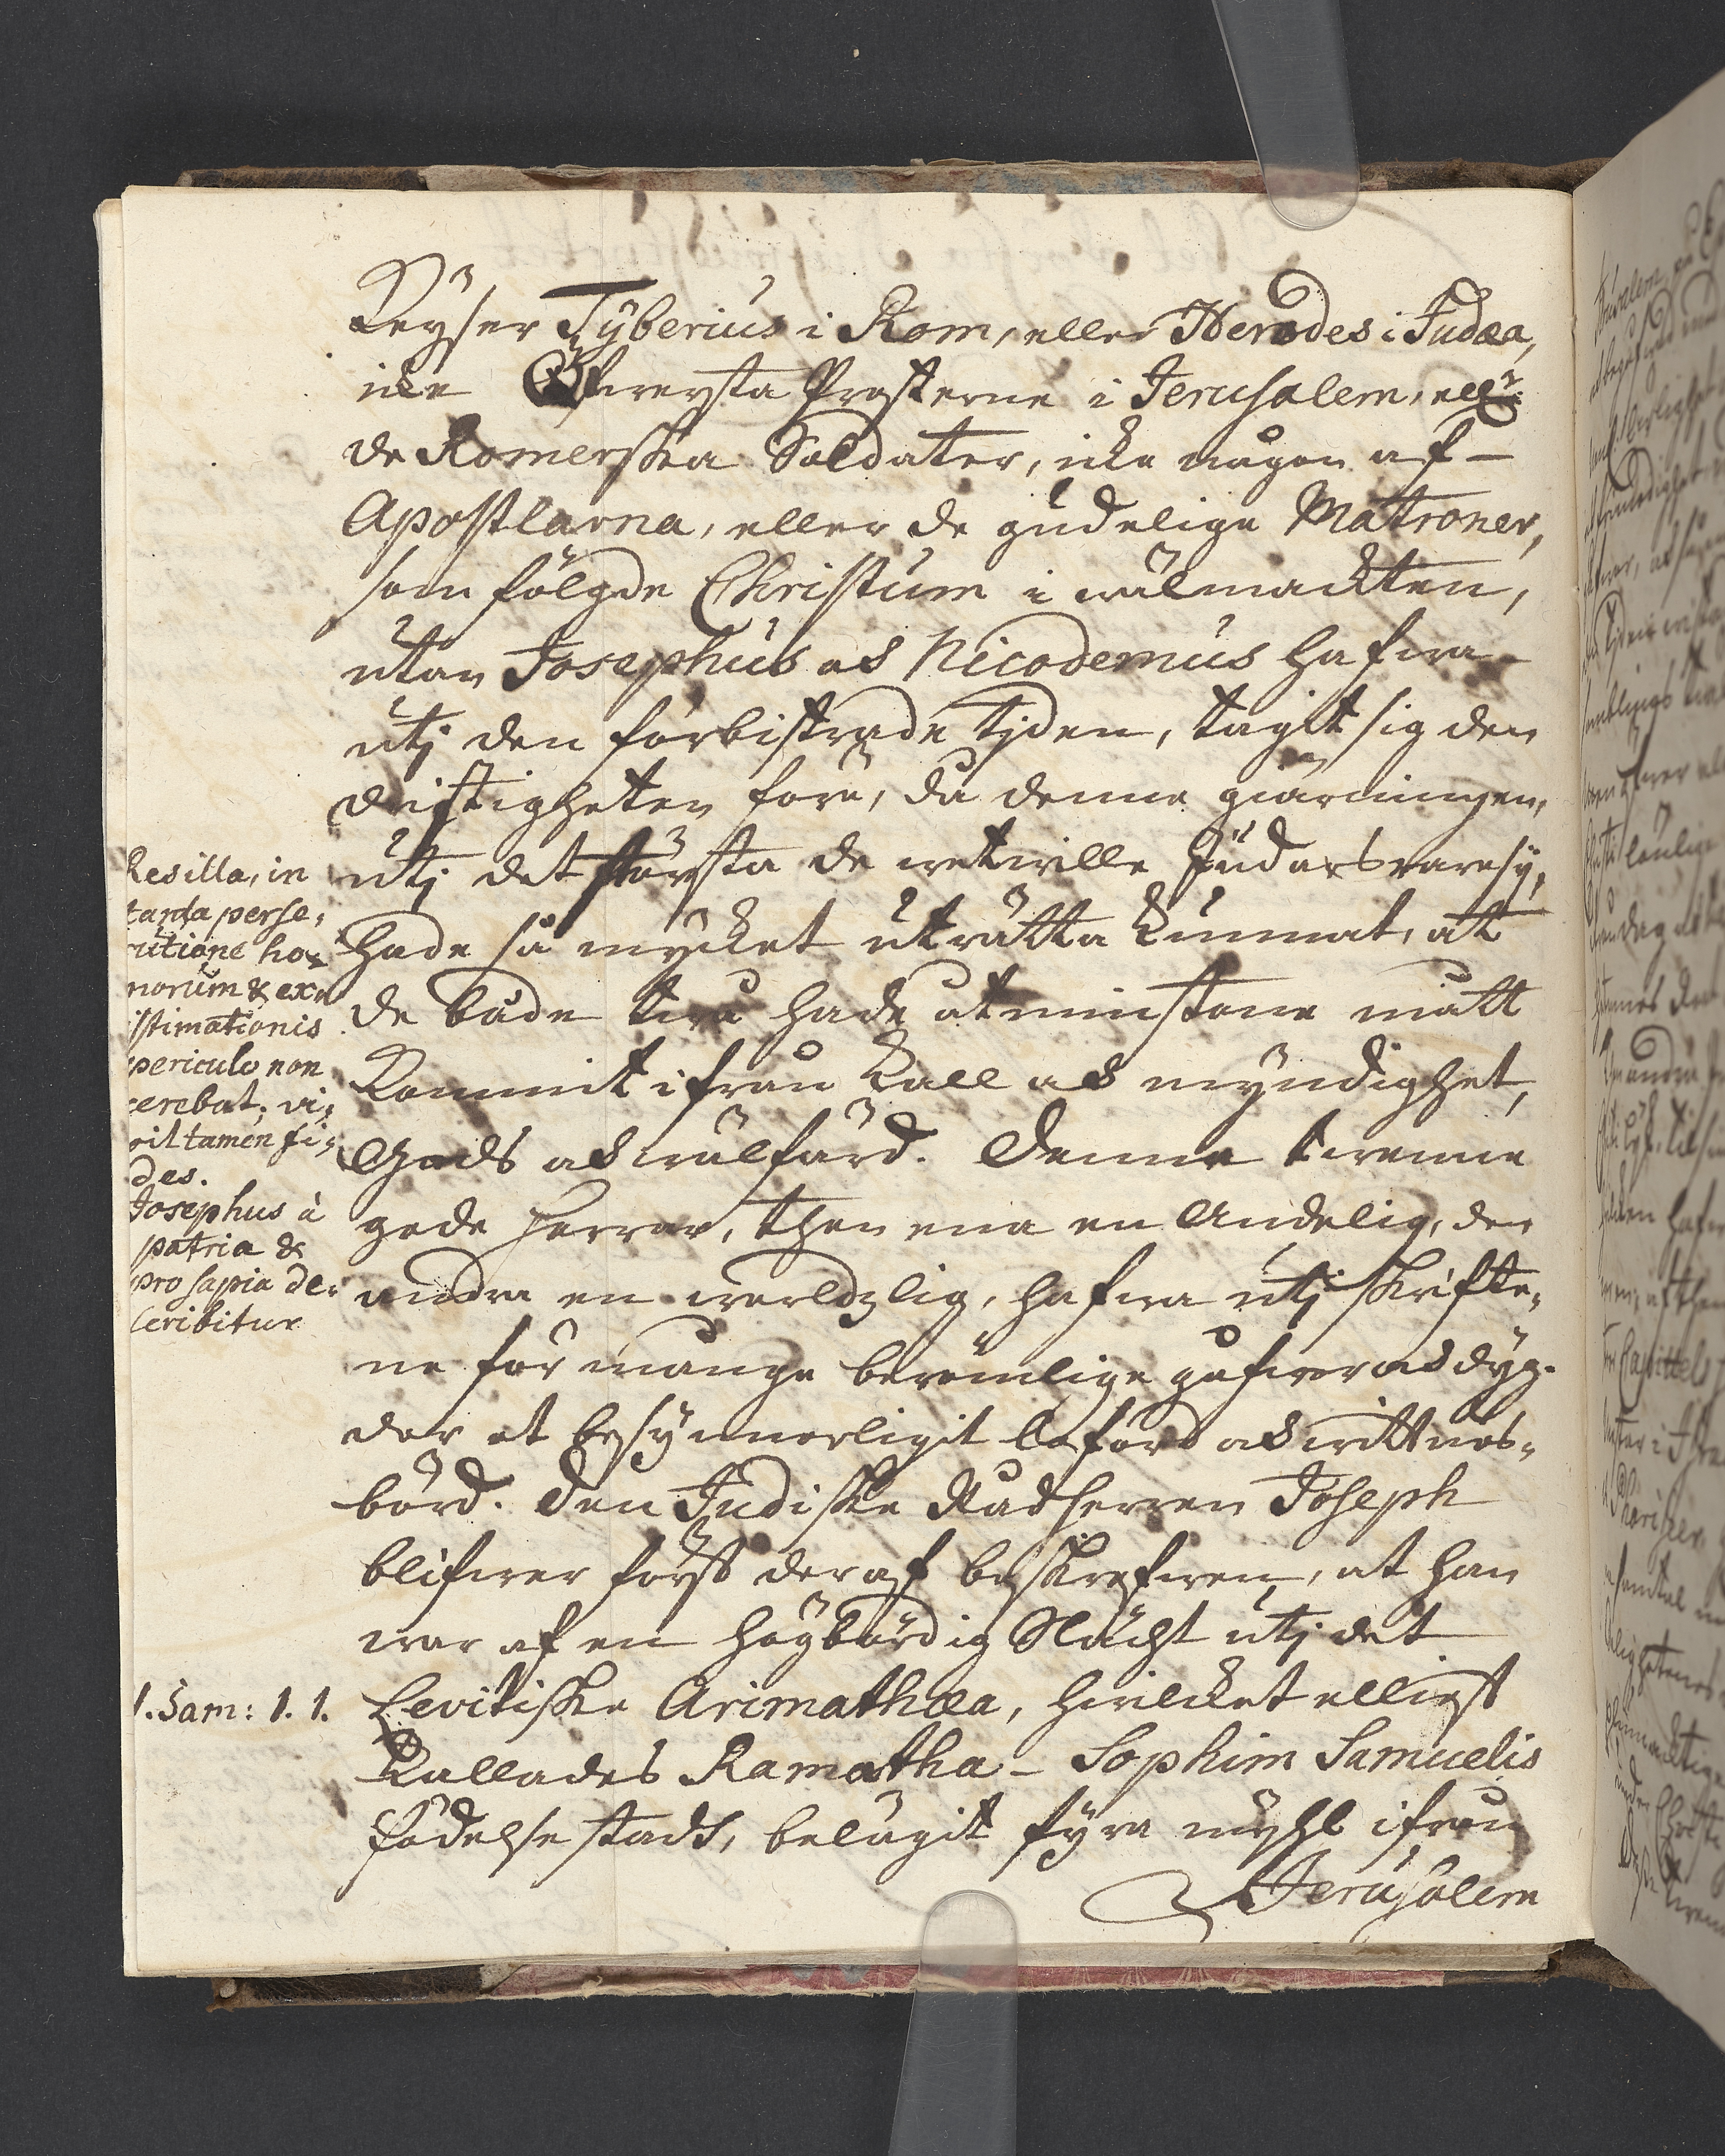 Keyser Tyberius i Rom, eller Herodes i Judæa,
icke Öfwersta Presterne i Jerusalem, ell:r
de Romerska Soldater, icke någon af
Apostlarna, eller de gudelige Matroner,
som fölgde Christum i wälmackten,
utan Josephus och Nicodemus hafwa
utj den förbistrade tjden, tagit sig den
dristigheten före, då denne giärningen,
utj det första de wetwille Judars raresy,
hade så mycket uträtta kunnat, at
de både twå hade åtminstone mått
kommit ifrån kall och myndighet,
Gods och wälfärd. Denne twenne
gode herrar, then ena en Andelig, den
andra en werldzlig, hafwa utj skrifte,
ne för många berömlige gåfwor och dyg-
der et besynnerligit beröm och wittnes-
börd. Den Judiske Rådherren Joseph
blifwer först deraf beskrefwen, at han
war af en högbördig Slächt utj det
Levitiske Arimathæa, hwilcket elliest
kallades Ramatha - Sophim Samuelis
födelse stadt, belägit fyra myhl ifrån
Jerusalem
Res illa, in
tanta perse,
cutione ho-
norum & ex-
istimationis
periculo non
cerebat; vi,
cit tamen fi-
des.
Josephus à
patria &
prosapia de-
scribitur
1. Sam: 1. 1.